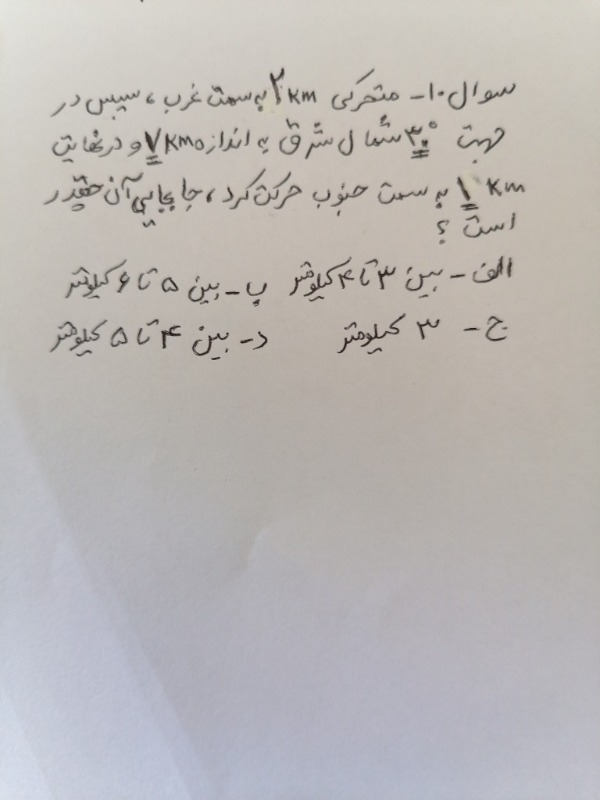 سوال ۱۰- متحرکی ۲ km به سمت غرب، سپس در
جهت ۳۰° شمال شرق به اندازه ۷ km و در نهایت
۱ km به سمت جنوب حرکت کرد، جابجایی آن چقدر
است ؟
الف- بین ۳ تا ۴ کیلومتر ب- بین ۵ تا ۶ کیلومتر
ج- ۳ کیلومتر د- بین ۴ تا ۵ کیلومتر